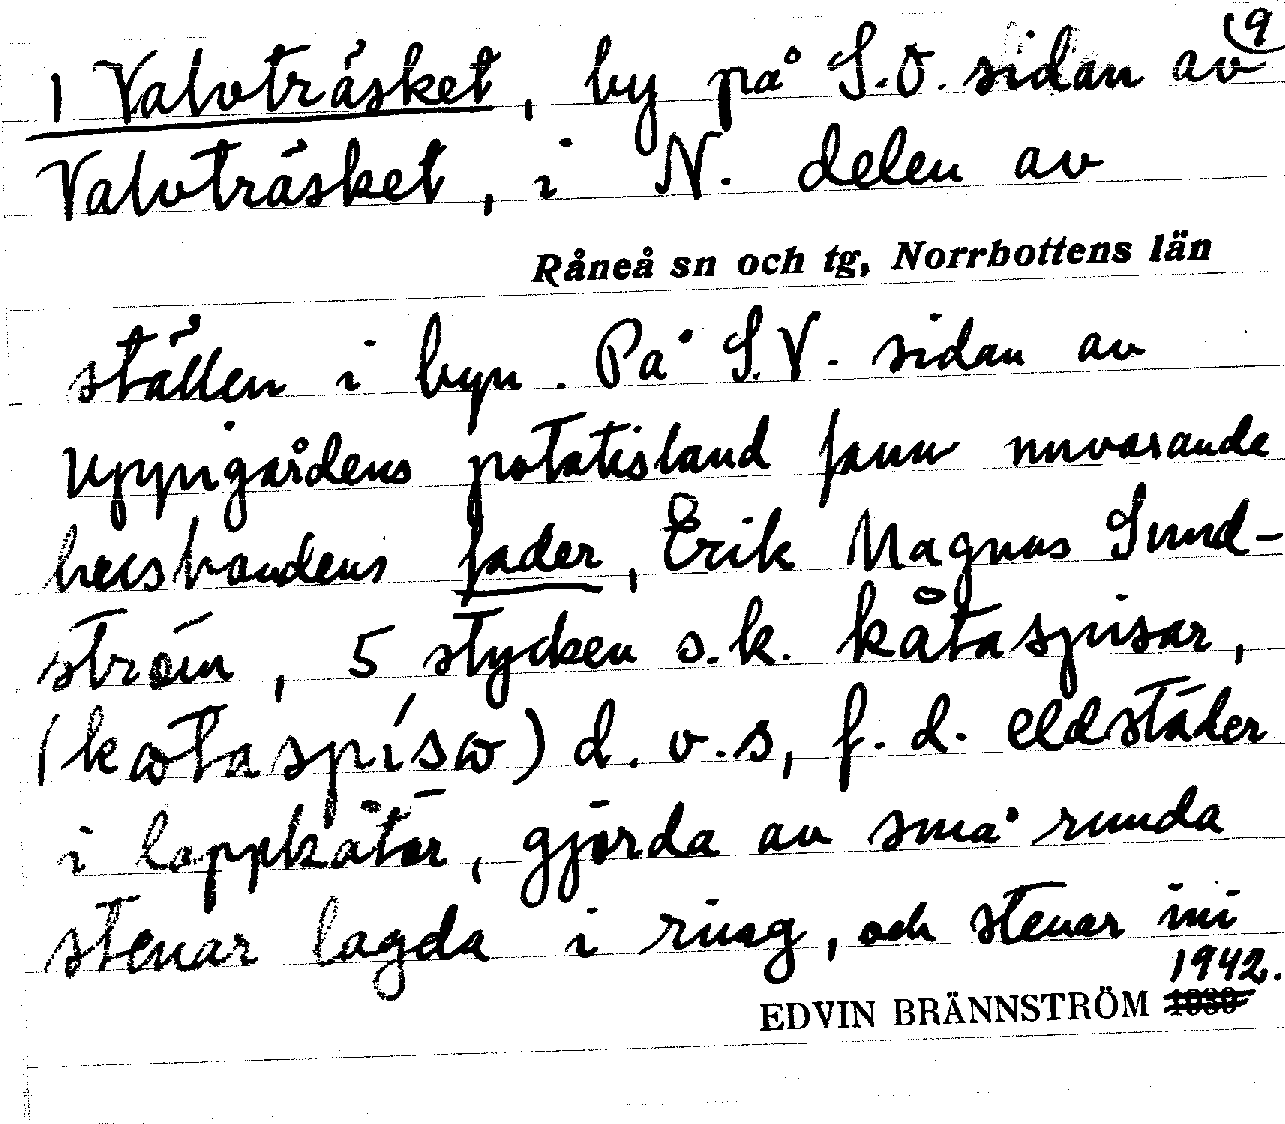 9
1 Valvträsket, by på S.O. sidan av
Valvträsket, i N. delen av
Råneå sn och tg, Norrbottens län
ställen i byn. På S.V. sidan av
Uppigårdens potatisland fann nuvarande
husbondens fader, Erik Magnus Sund-
ström, 5 stycken s.k. kåtaspisar,
(kωtaspísω) d.v.s, f.d. eldstäder
i lappkåtor, gjorda av små runda
stenar lagda i ring, och stenar ini
1942.
EDVIN BRÄNNSTRÖM